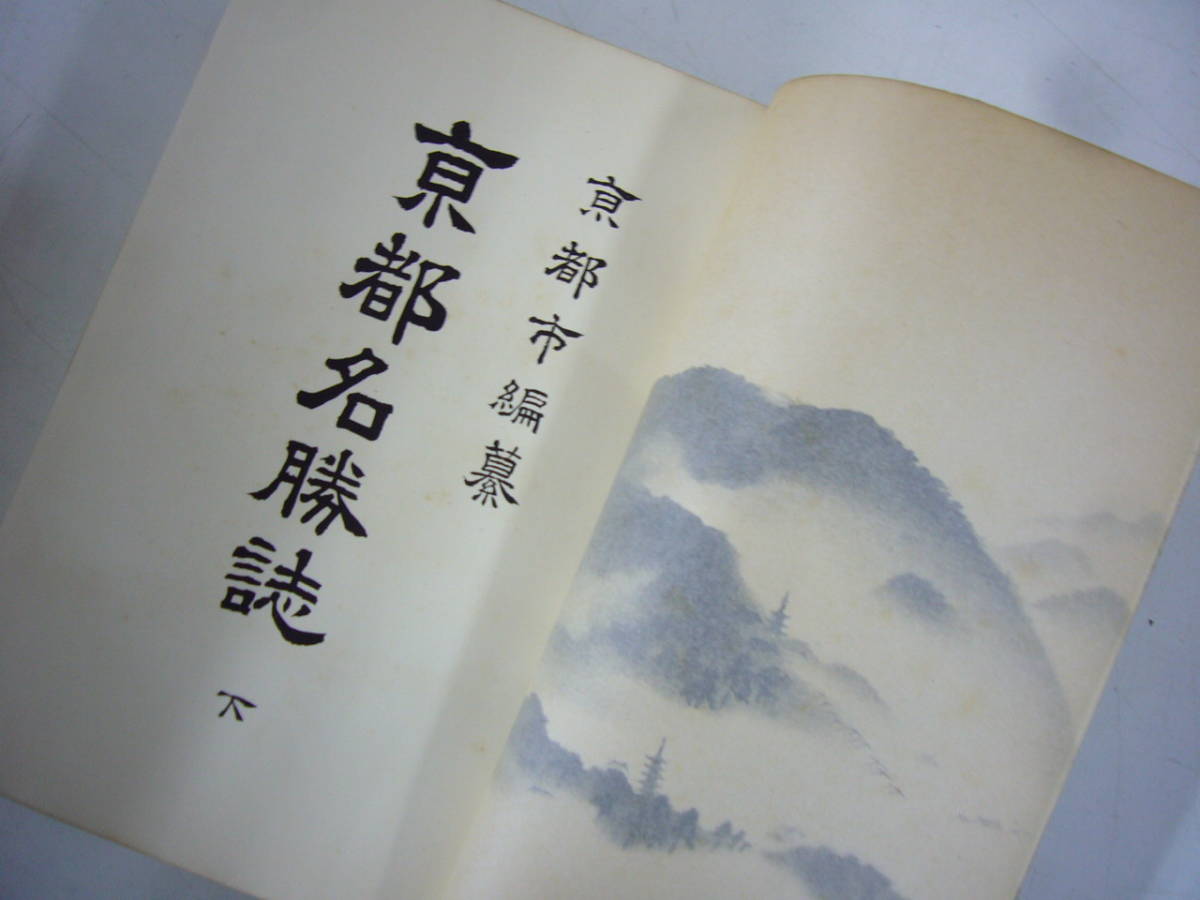 亰都市編纂
亰都名勝誌
下